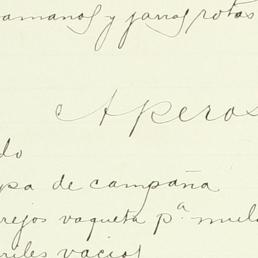 amanos y jarras rotas
Aperos
do
pa de campaña
rejos vaqueta pª mula
riles vacios